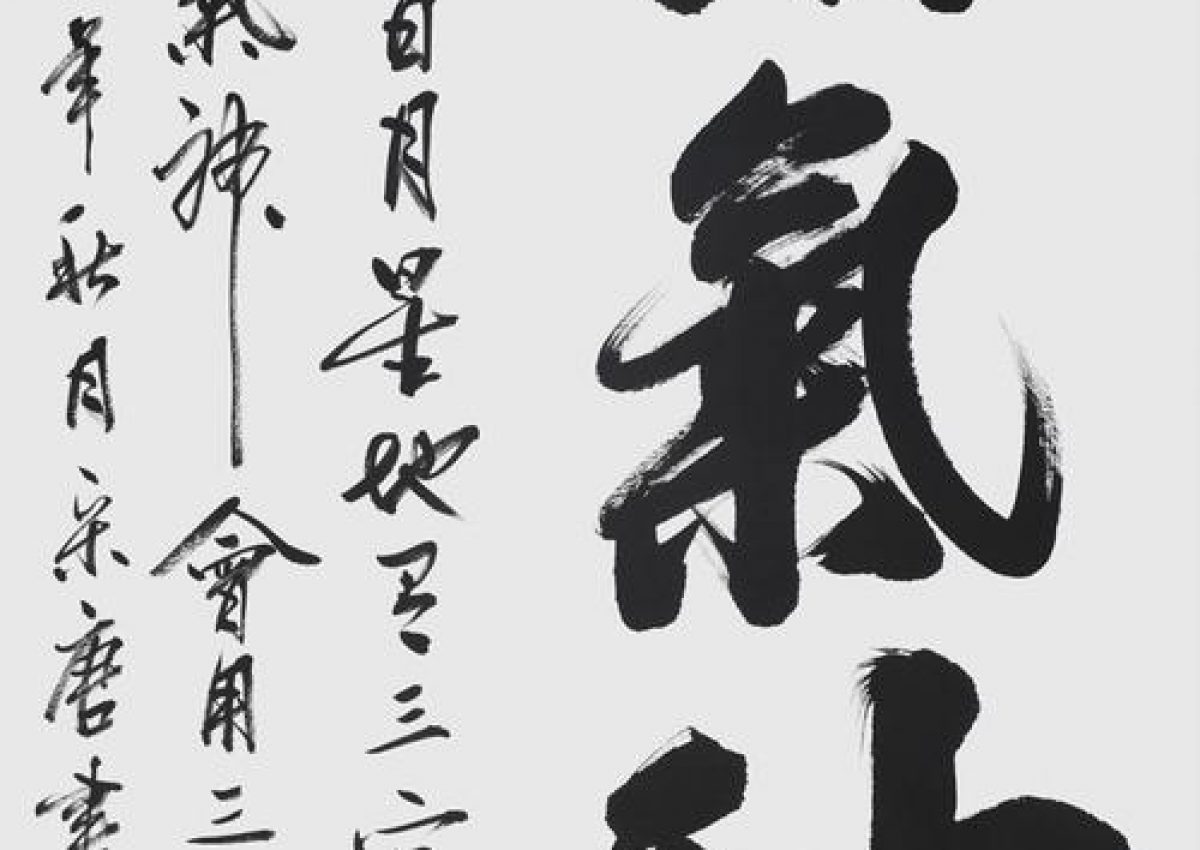 氣
日月星地有三
氣神會用三
年秋月宋唐書